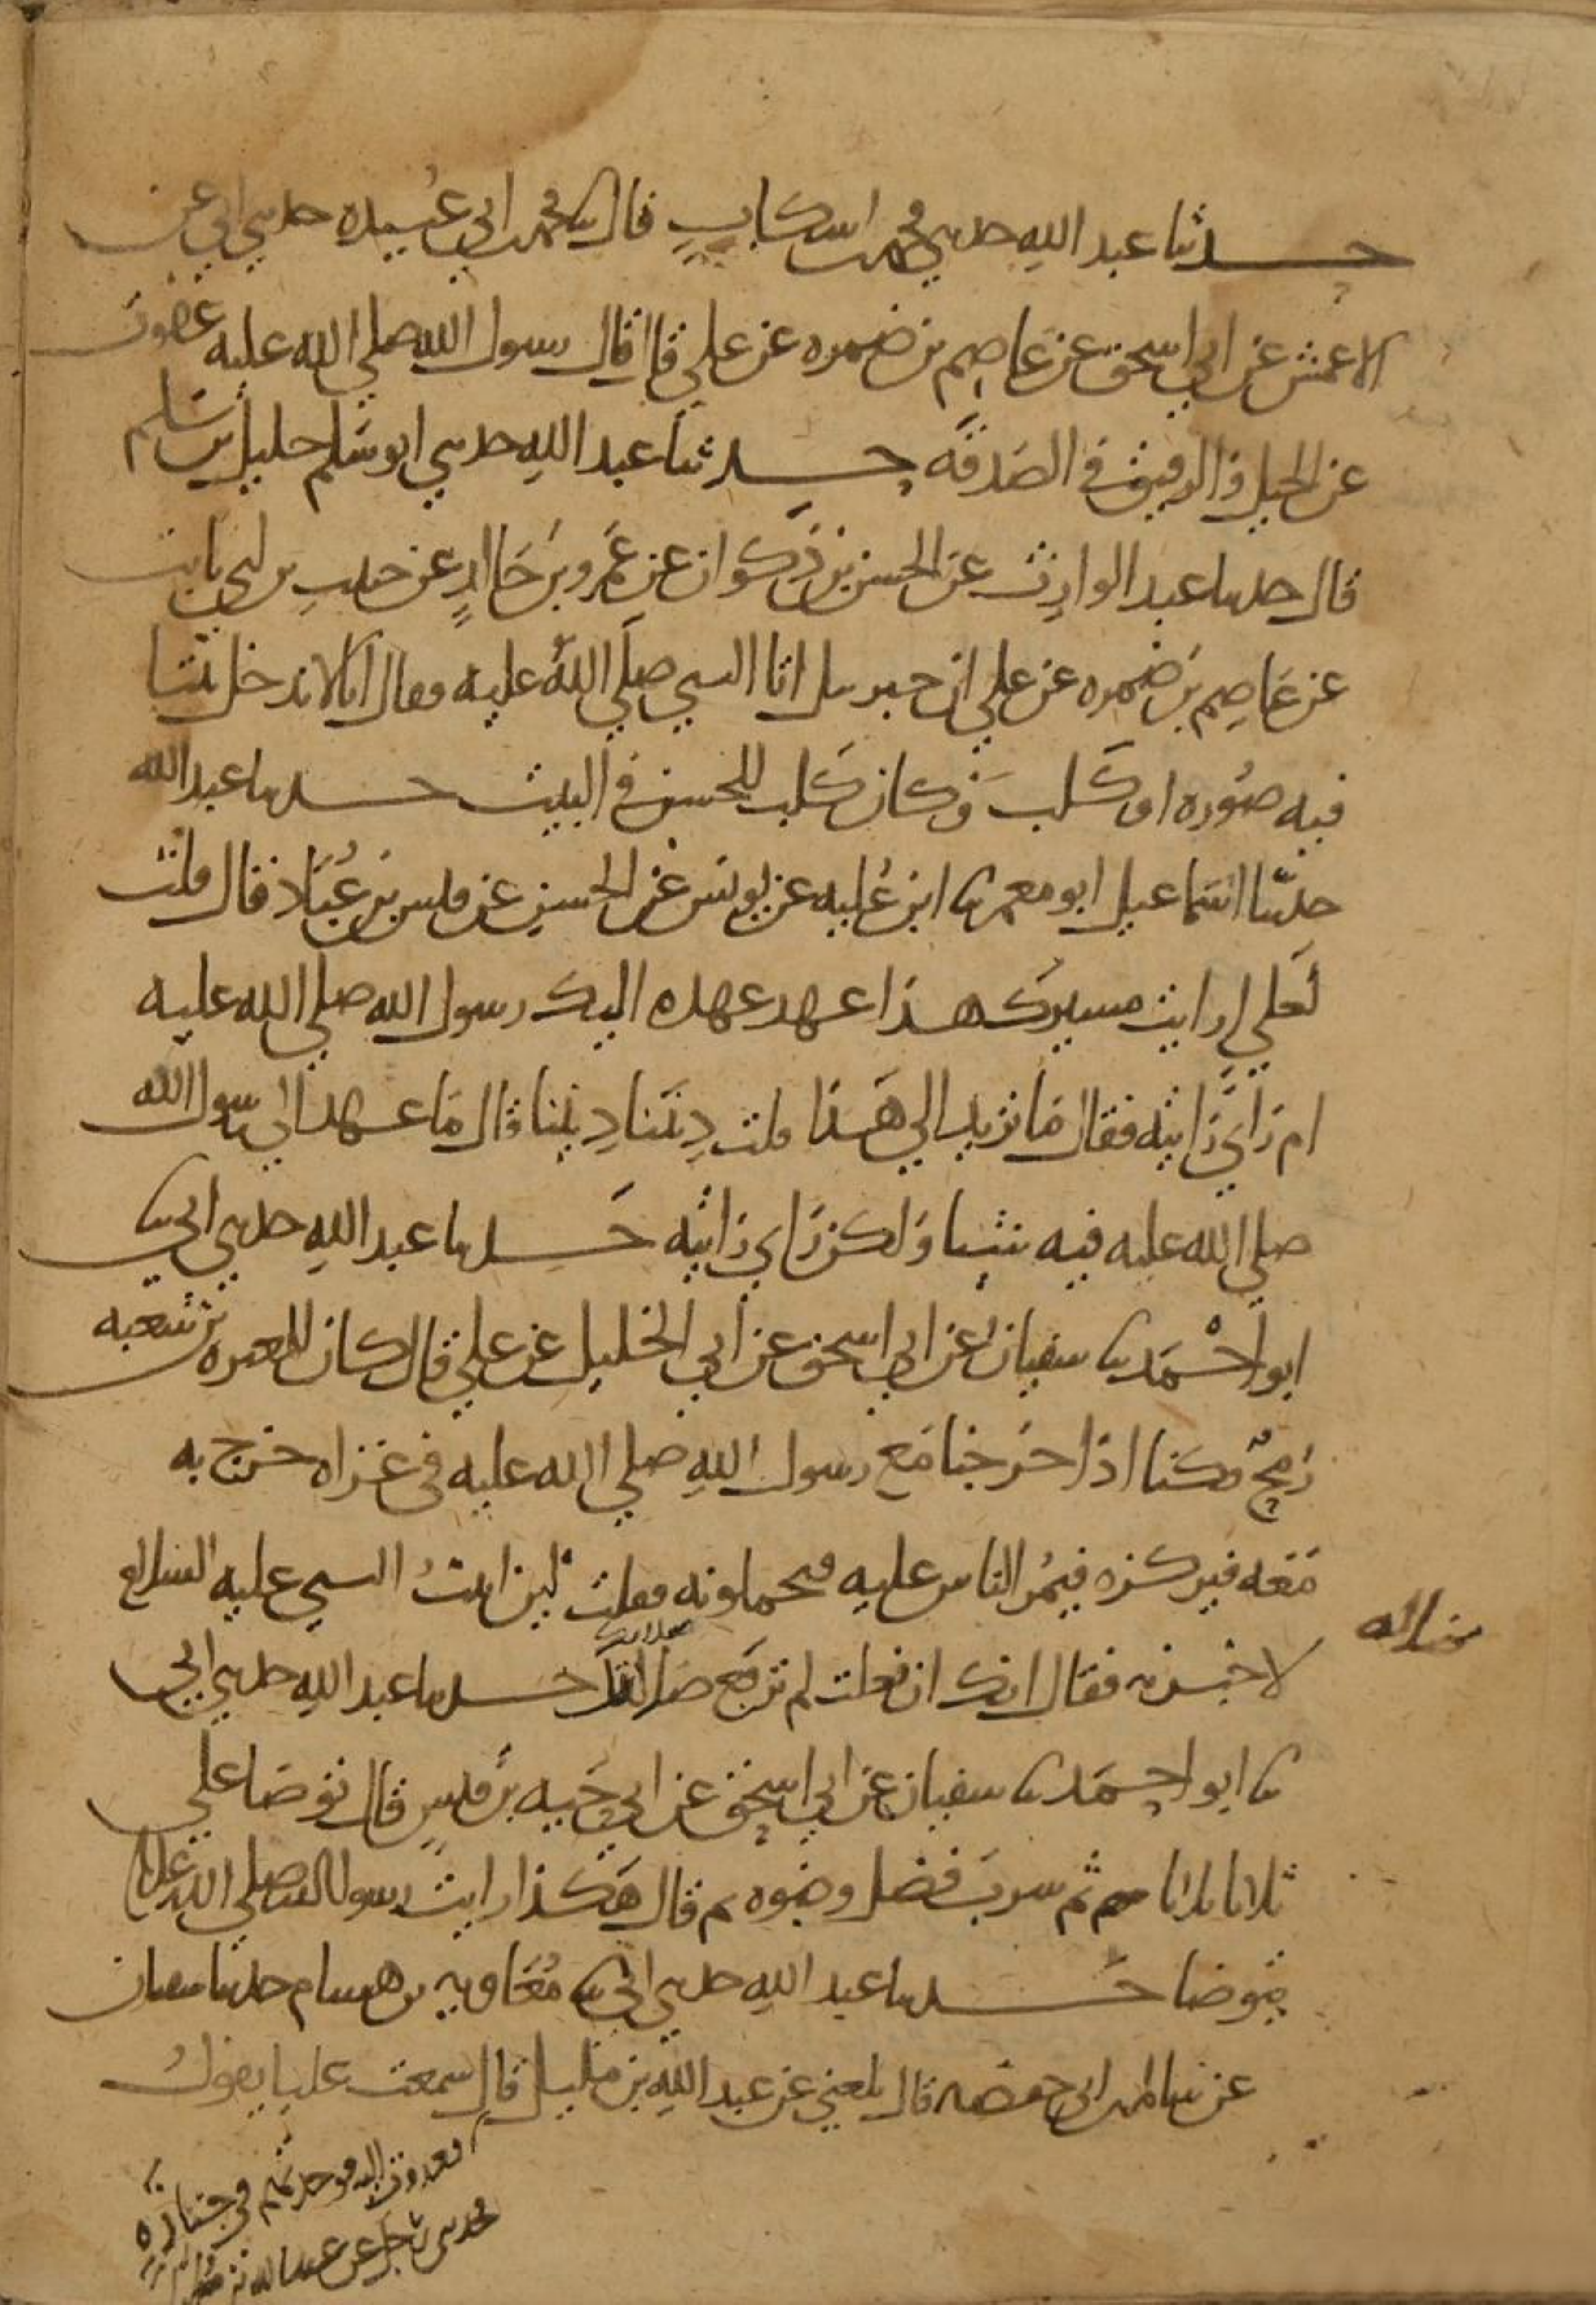 حدثنا عبد الله حدثني محمد بن اشكاب قال ثنا محمد بن ابي عبيده حدثني ابي عن
الاعمش عن ابي اسحق عن عاصم بن ضمره عن علي قال قال رسول الله صلى الله عليه عفوت
عن الخيل والرقيق في الصدقه حدثنا عبد الله حدثني ابو سلم خليل بن سلم
قال حدثنا عبد الوارث عن الحسن بن ذكوان عن عمرو بن خالد عن حبيب بن ابي ثابت
عن عاصم بن ضمره عن علي ان جبريل اتا النبي صلى الله عليه فقال انا لا ندخل بيتا
فيه صوره او كلب وكان كلب للحسن في البيت حدثنا عبد الله
حدثنا اسماعيل ابو معمر ثنا ابن عليه عن يونس عن الحسن عن قيس بن عباد قال قلت
لعلي ارايت مسيرك هذا عهد عهده اليك رسول الله صلى الله عليه
ام راي رايته فقال ما تريد الي هذا قلت ديننا ديننا قال ما عهد الي رسول الله
صلى الله عليه فيه شيئا ولكن راي رايته حدثنا عبد الله حدثني ابي ثنا
ابو احمد ثنا سفيان عن ابي اسحق عن ابي الخليل عن علي قال كان للمغيره بن شعبه
رمح وكنا اذا خرجنا مع رسول الله صلى الله عليه في غزاه خرج به
معه فيركزه فيمر الناس عليه فيحملونه فقلت لئن اتيت النبي عليه السلام
لاخبرنه فقال انك ان فعلت لم ترفع ضالة حدثنا عبد الله حدثني ابي
ثنا ابو احمد ثنا سفيان عن ابي اسحق عن ابي حيه بن قيس قال توضا علي
ثلاثا ثلاثا ثم شرب فضل وضوه ثم قال هكذا رايت رسول الله صلى الله عليه
يتوضا حدثنا عبد الله حدثني ابي ثنا معاويه بن هشام حدثنا سفيان
عن سالم بن ابي حفصه قال بلغني عن عبد الله بن مليل قال سمعت عليا يقول
فغدوت اليه فوجدتهم في جنازة
فحدثني رجل عن عبد الله بن
ضاله